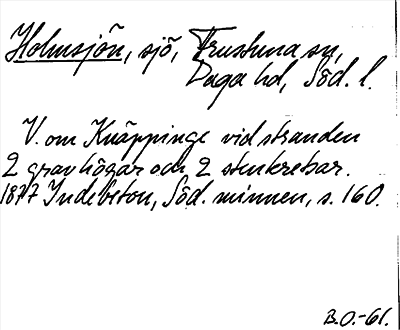 Holmsjön, sjö, Frustuna sn,
Daga hd, Söd. l.
V. om Knäppinge vid stranden
2 gravhögar och 2 stenkretsar.
1877 Indebetou, Söd. minnen, s. 160.
B.O.-61.